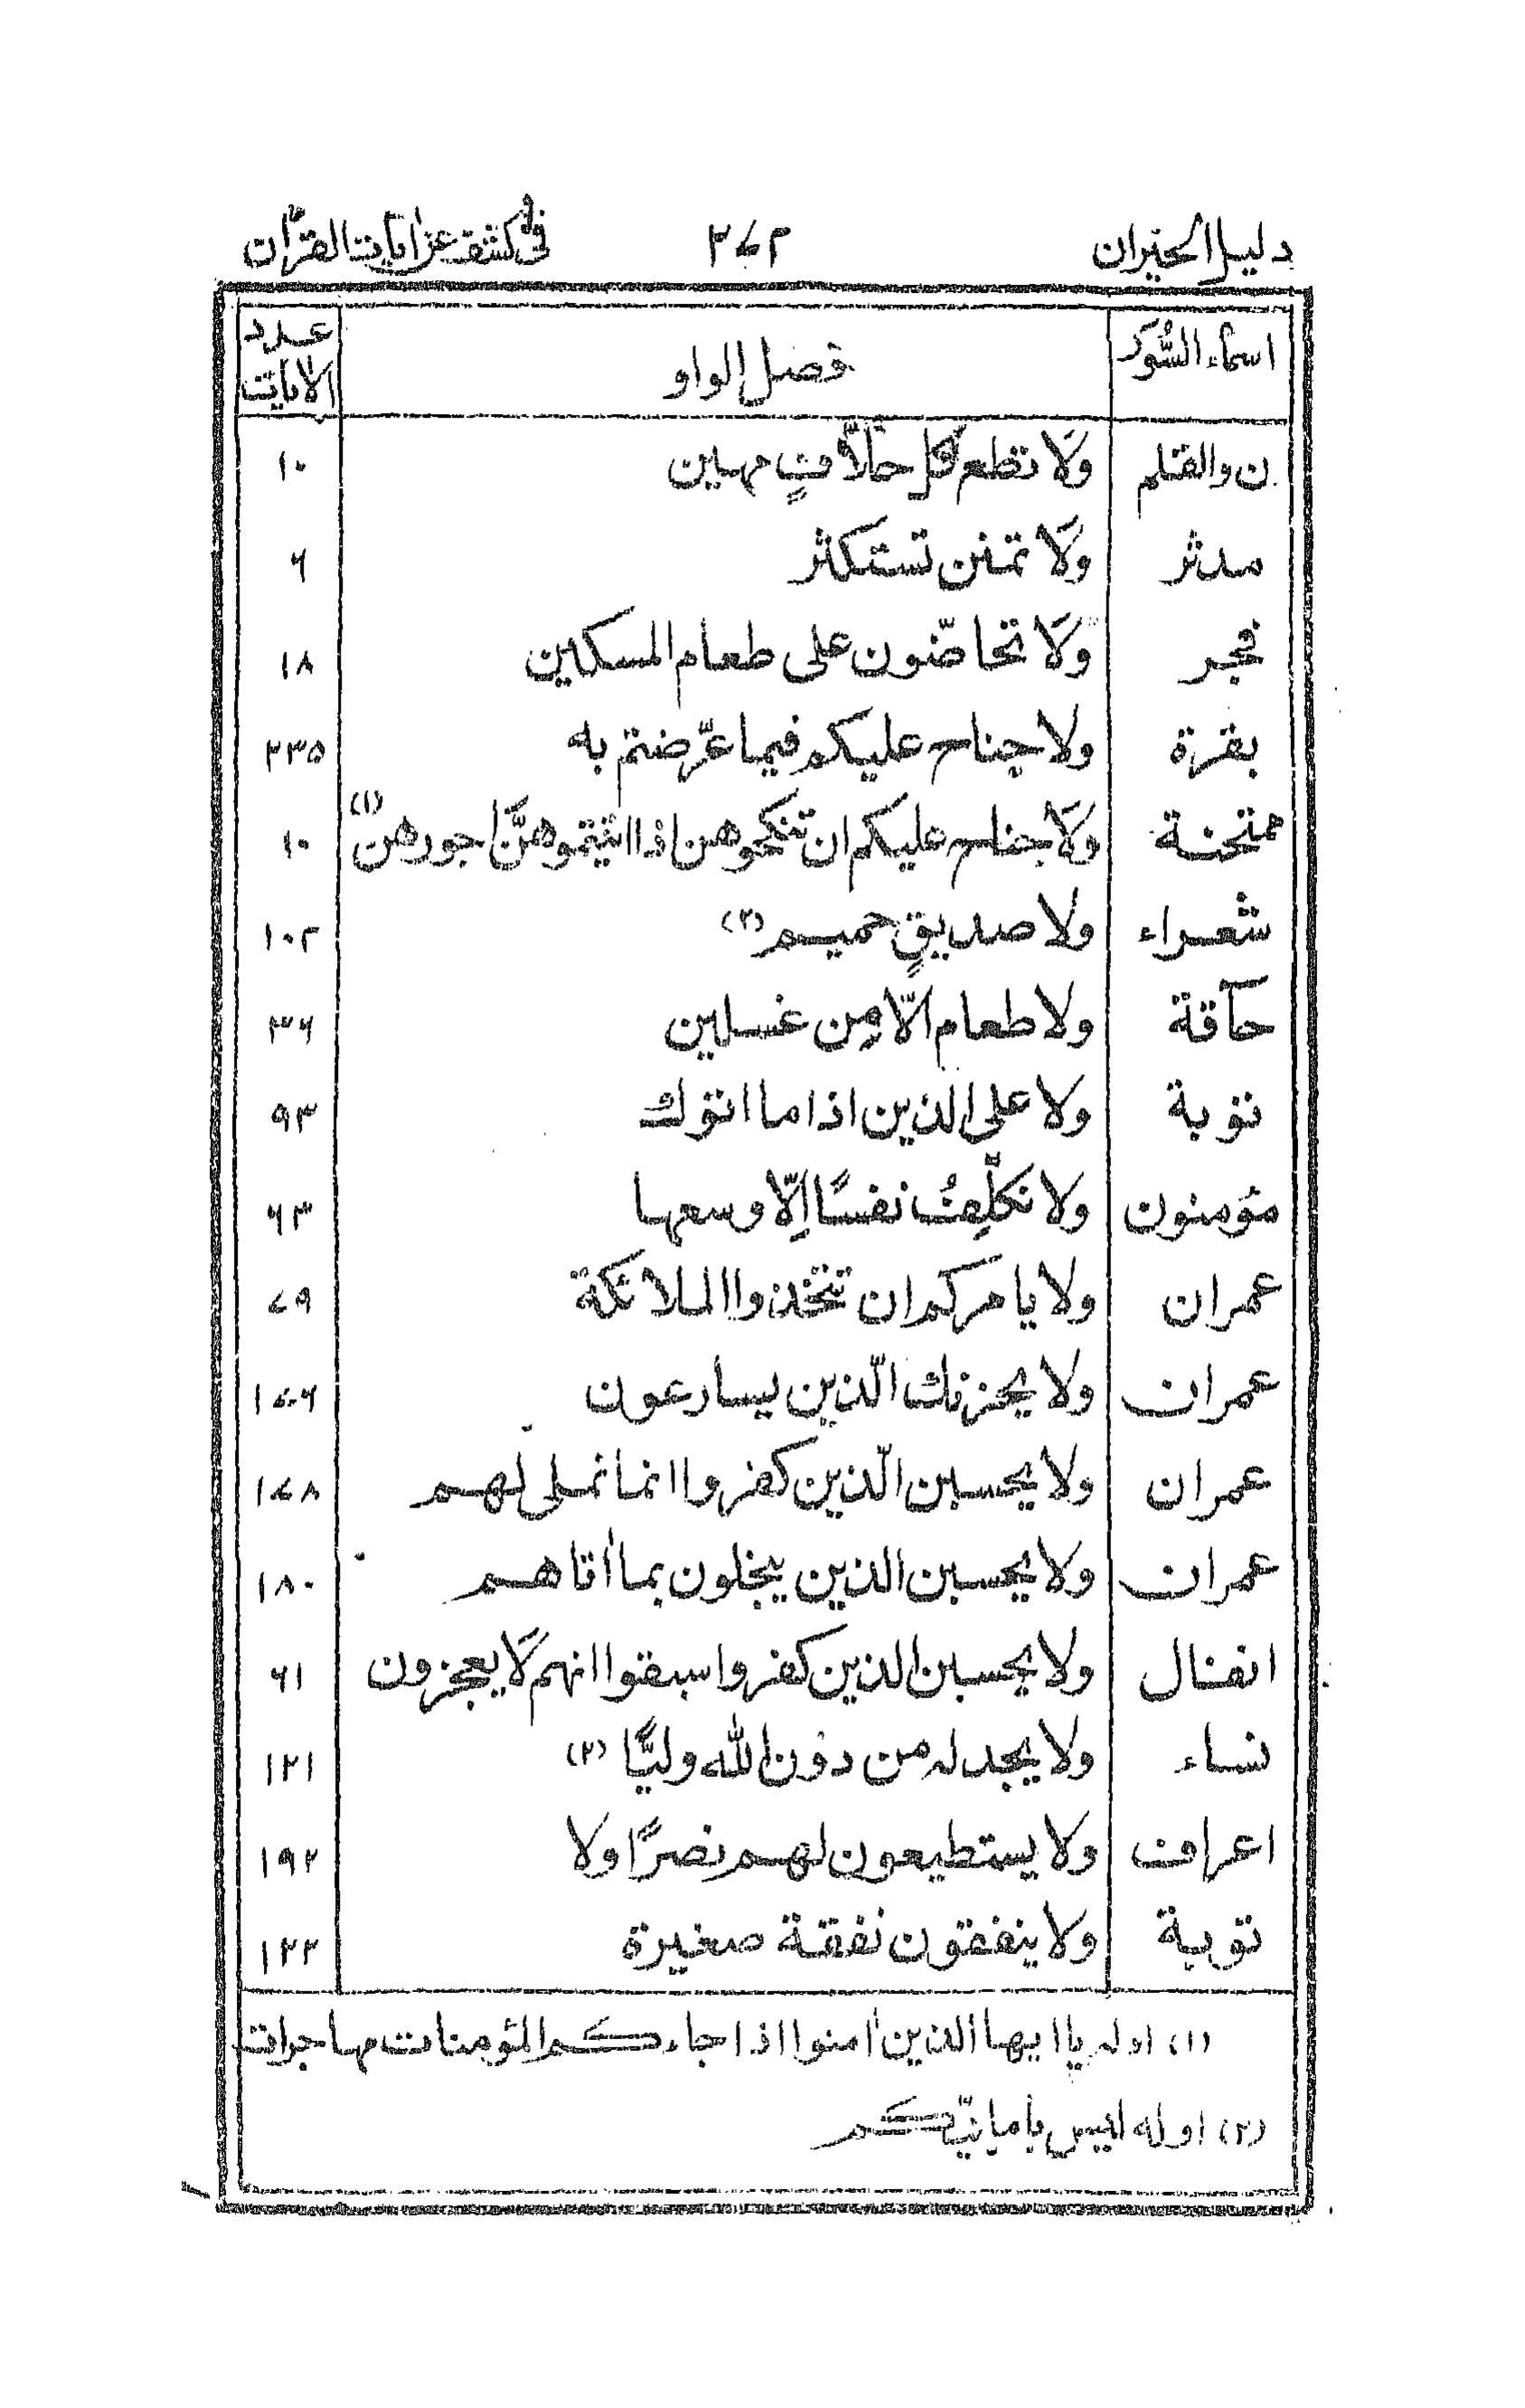 دليل الحيران ٣٧٢ فى كشف عن اٰيات القرآن
اسماء السُّور فصل الواو عدد الاٰيات
ن والقلم وَلَا تطع كُلَّ حلّافٍ مهين ١٠
مدثر وَلَا تمنن تستكثر ٦
فجر وَلَا تحاضّون على طعام المسكين ١٨
بقرة ولا جناح عليكم فيما عرّضتم به ٢٣٥
ممتحنة وَلَا جناح عليكم ان تنكحوهن اذا اٰتيتموهنَّ اجورهن (١) ١٠
شعراء ولا صديقٍ حميم (٢) ١٠٢
حآقة ولا طعام الّا مِن غسلين ٣٦
توبة ولا على الذين اذا ما اتوك ٩٣
مؤمنون ولا نكلِّفُ نفسًا اِلّا وسعها ٦٣
عمران ولا يامركم ان تتخذوا الملائكة ٧٩
عمران ولا يحزنك الّذين يسارعون ١٧٦
عمران ولا يحسبن الّذين كفروا انما نملى لهم ١٧٨
عمران ولا يحسبن الذين يبخلون بما اٰتاهم ١٨٠
انفال ولا يحسبن الذين كفروا سبقوا انهم لَا يعجزون ٦١
نساء ولا يجد له من دون الله وليًّا (٢) ١٢١
اعراف ولا يستطيعون لهم نصرًا ولا ١٩٢
توبة ولا ينفقون نفقة صغيرة ١٢٢
(١) اوله يا ايها الذين اٰمنوا اذا جاءكم المؤمنات مهاجرات
(٢) اوله ليس بامانيّكم